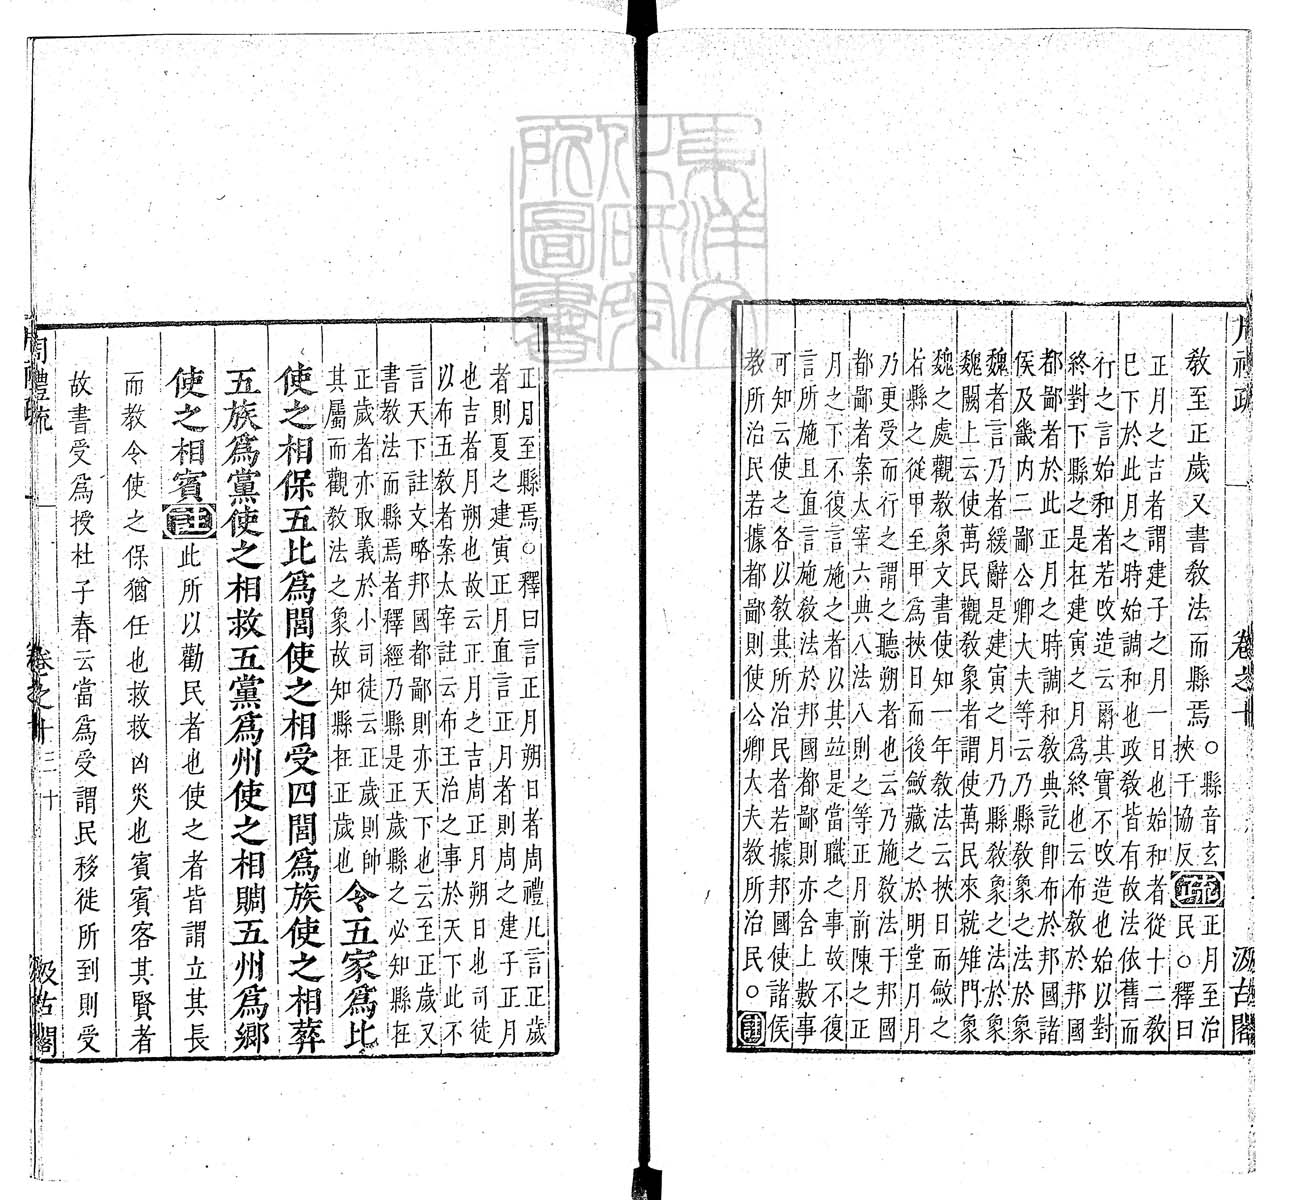 周禮疏 卷之十 汲古閣
敎至正歲又書敎法而縣焉○縣音玄
挾干協反疏正月至治
民○釋曰
正月之吉者謂建子之月一日也始和者從十二敎
已下於此月之時始調和也政敎皆有故法依舊而
行之言始和者若攺造云爾其實不攺造也始以對
終對下縣之是在建寅之月爲終也云布敎於邦國
都鄙者於此正月之時調和敎典訖卽布於邦國諸
侯及畿内二鄙公卿大夫等云乃縣敎象之法於象
魏者言乃者緩辭是建寅之月乃縣敎象之法於象
魏闕上云使萬民觀敎象者謂使萬民來就雉門象
魏之處觀敎象文書使知一年敎法云挾日而斂之
若縣之從甲至甲爲挾日而後斂藏之於明堂月月
乃更受而行之謂之聽朔者也云乃施敎法于邦國
都鄙者案太宰六典八法八則之等正月前陳之正
月之下不復言施之者以其竝是當職之事故不復
言所施且直言施敎法於邦國都鄙則亦合上數事
可知云使之各以敎其所治民者若據邦國使諸侯
敎所治民若據都鄙則使公卿大夫敎所治民○註
正月至縣焉○釋曰言正月朔日者周禮凡言正歲
者則夏之建寅正月直言正月者則周之建子正月
也吉者月朔也故云正月之吉周正月朔日也司徒
以布五敎者案太宰註云布王治之事於天下此不
言天下註文略邦國都鄙則亦天下也云至正歲又
書敎法而縣焉者釋經乃縣是正歲縣之必知縣在
正歲者亦取義於小司徒云正歲則帥
其屬而觀敎法之象故知縣在正歲也令五家爲比
使之相保五比爲閭使之相受四閭爲族使之相葬
五族爲黨使之相救五黨爲州使之相賙五州爲鄉
使之相賓註此所以勸民者也使之者皆謂立其長
而敎令使之保猶任也救救凶災也賓賓客其賢者
故書受爲授杜子春云當爲受謂民移徙所到則受
周禮疏 卷之十 三十 汲古閣
東洋文化研究所圖書